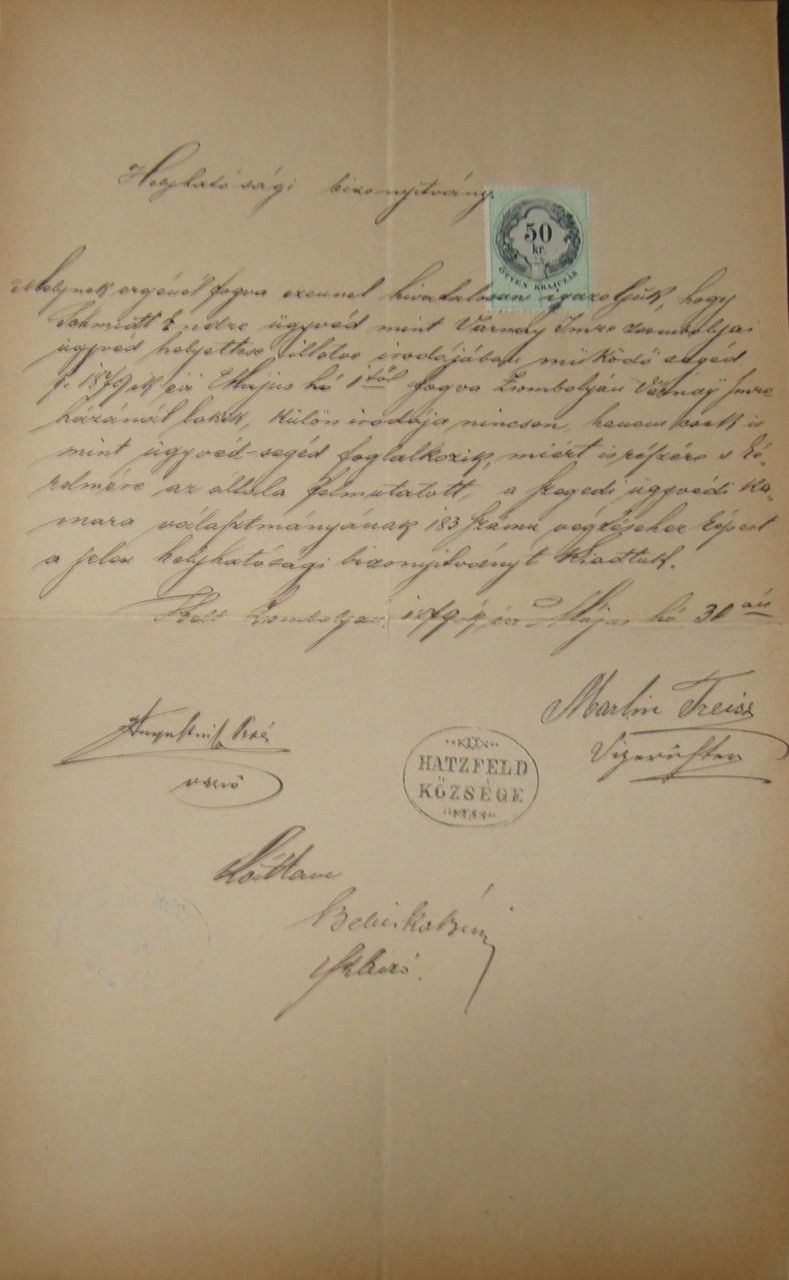 Helyhatósági bizonyitvány
50
kr.
ÖTVEN KRAJCZÁR
Melynek erejénél fogva ezennel hivatalosan igazoljuk, hogy
Schmidt Endre ügyvéd mint Várnay Imre zsombolyai
ügyvéd helyettese illetve irodájában müködő segéd
f. 1879ik évi Május hó 1től fogva Zsombolyán Várnaÿ Imre
házánál lakik, külön irodája nincsen, hanem csak is
mint ügyvéd-segéd foglalkozik, miért is részére s ké-
relmére az általa felmutatott, a szegedi ügyvédi ka-
mara választmányának 183 számu végzéséhez képest
a jelen helyhatósági bizonyitványt kiadtuk.
Kelt Zsombolyán 1879ik évi Május hó 31 én
Martin Treiss
Vizerichter
HATZFELD
KÖZSÉGE
Láttam
Béni